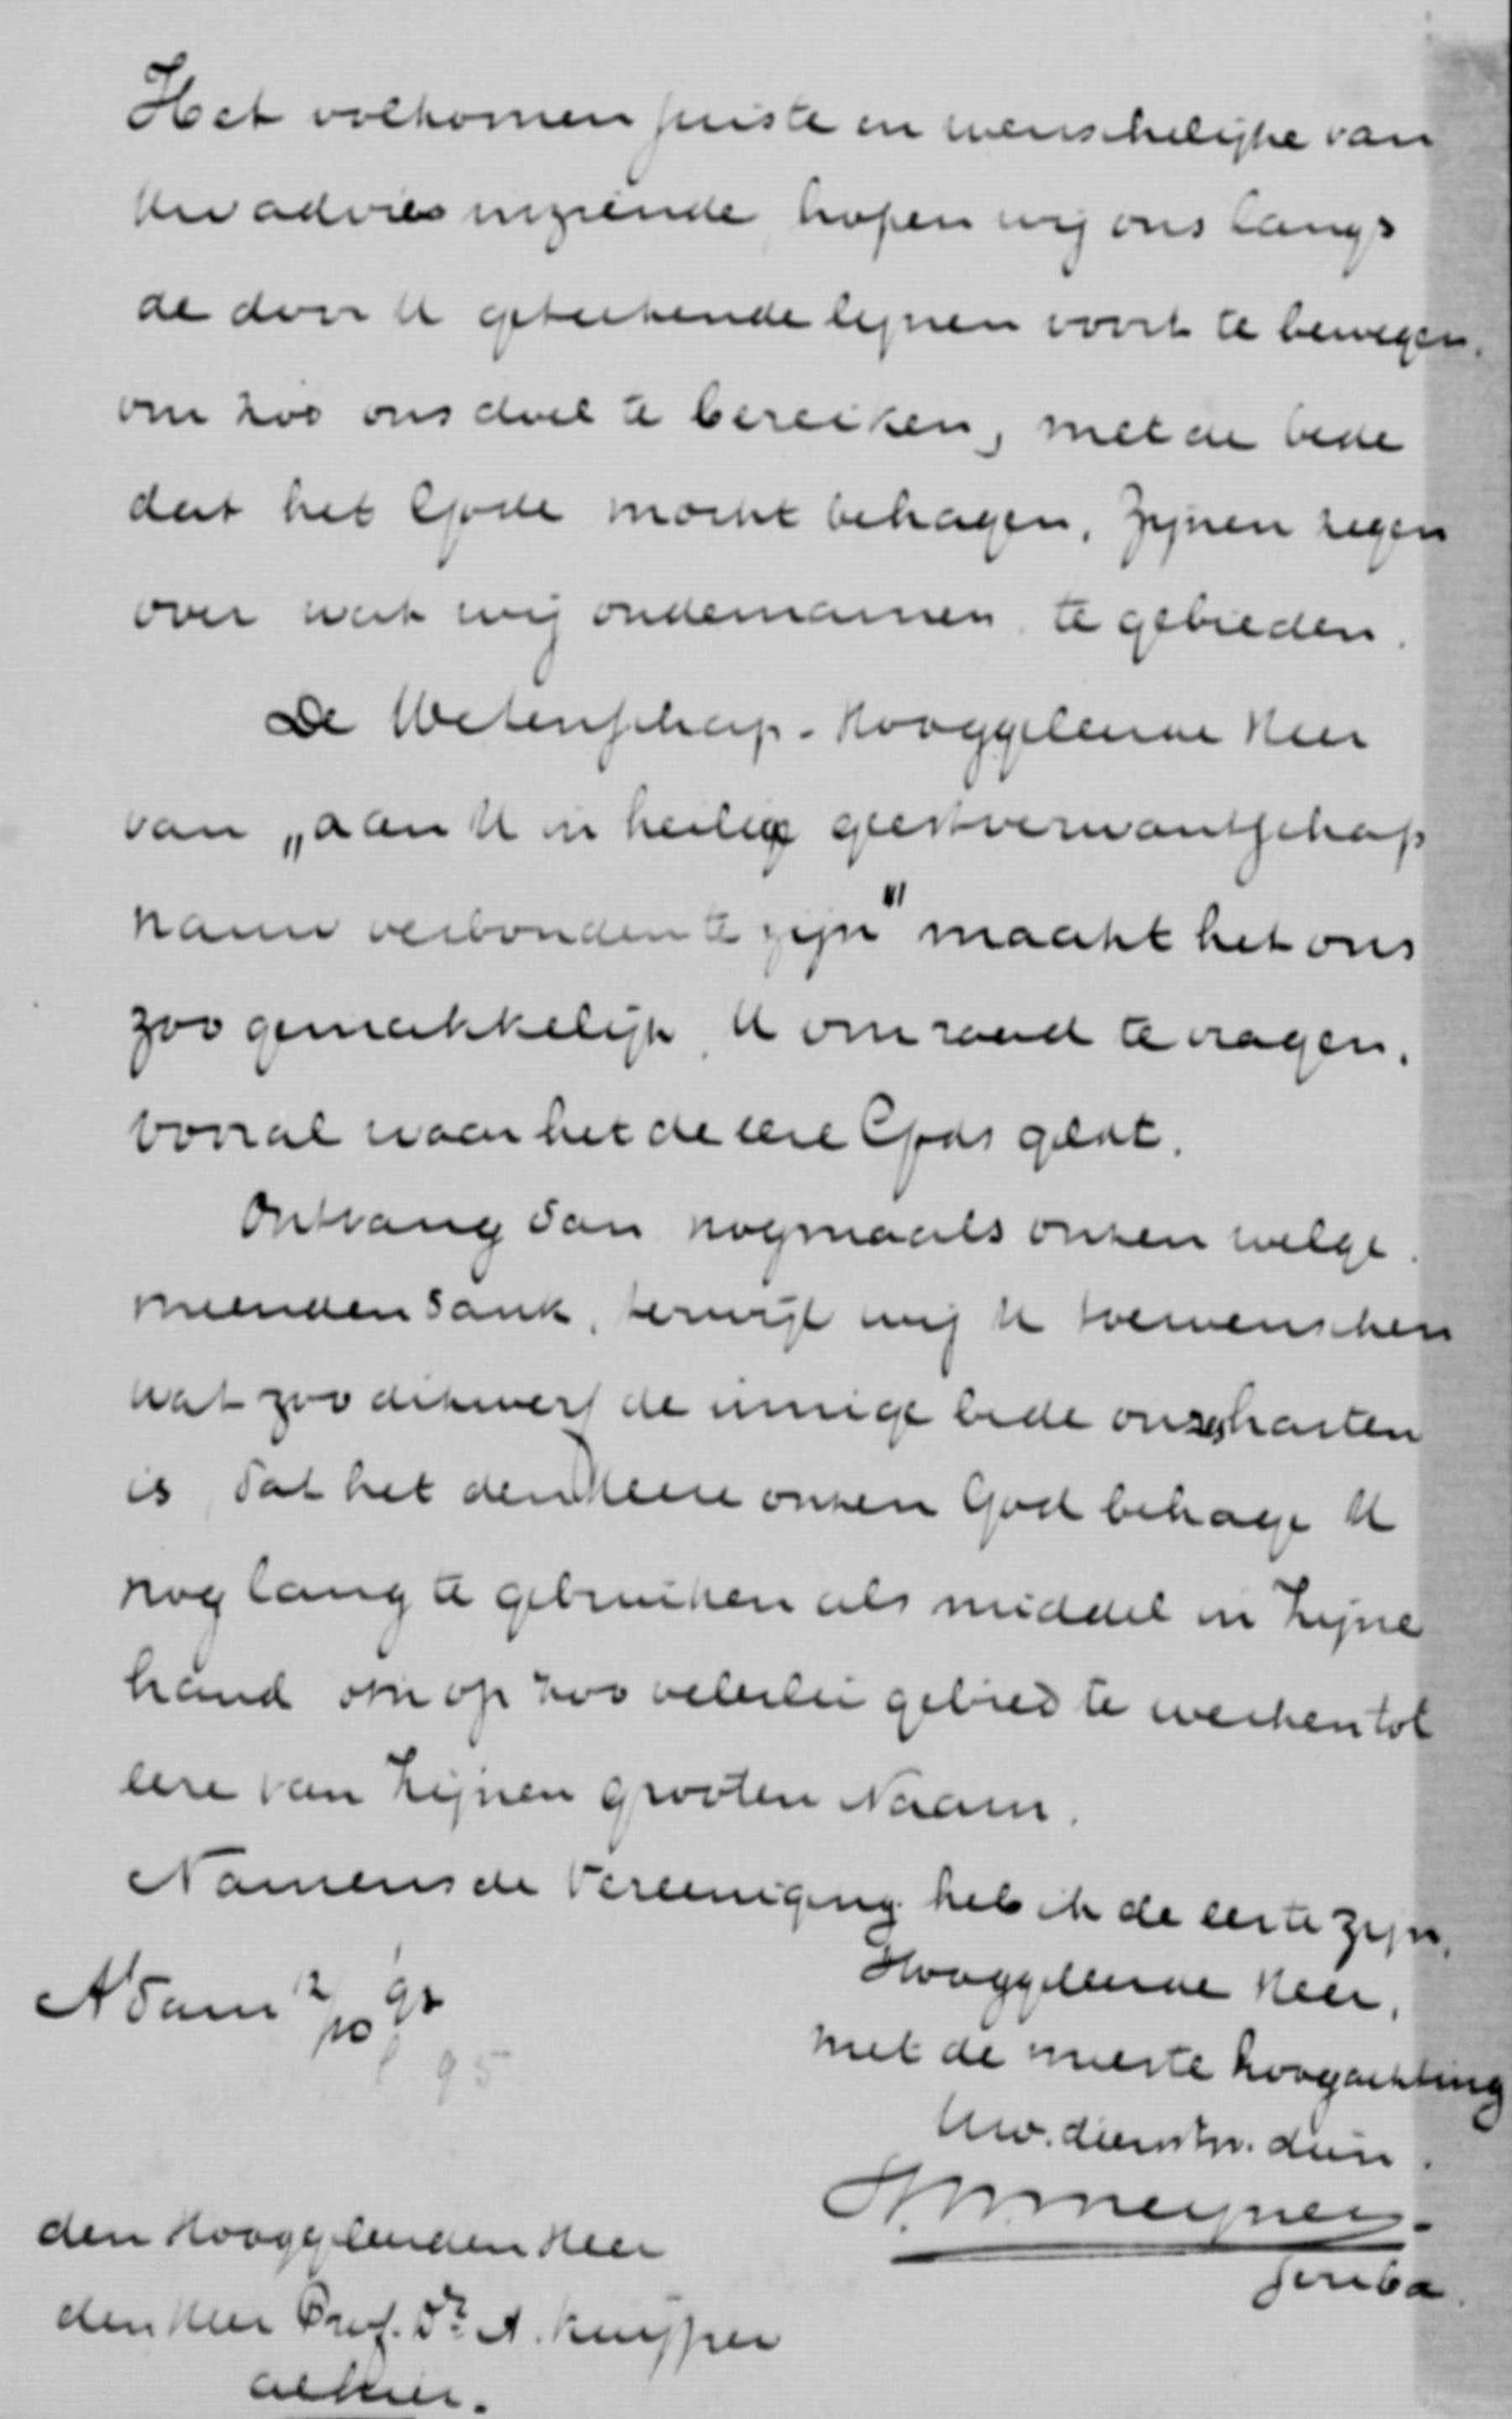 Het volkomen juiste en wenschelijke van
Uw advies inziende hopen wij ons langs
de door U geteekende lijnen voort te bewegen,
om zoo ons doel te bereiken, met de bede
dat het Gode mocht behagen, Zijnen zegen
over wat wij ondernamen te gebieden.
De Wetenschap - Hooggeleerde Heer
van „aan U in heilige geestverwantschap
nauw verbonden te zijn" maakt het ons
zoo gemakkelijk U om raad te vragen,
vooral waar het de eere Gods geldt.
Ontvang dan nogmaals onzen welge-
meenden dank, terwijl wij U toewenschen
wat zoo dikwerf de innige bede onzes harten
is dat het den Heere onzen God behage U
nog lang te gebruiken als middel in Zijne
hand om op zoo velerlei gebied te werken tot
eere van Zijnen grooten Naam.
Namens de Vereeniging heb ik de eer te zijn,
Hooggeleerde Heer,
met de meeste hoogachting
Uw. dienstw. dien.
A'dam 12/10 95
95
den Hooggeleerden Heer
den Heer Prof. Dr. A. Kuyper
alhier.